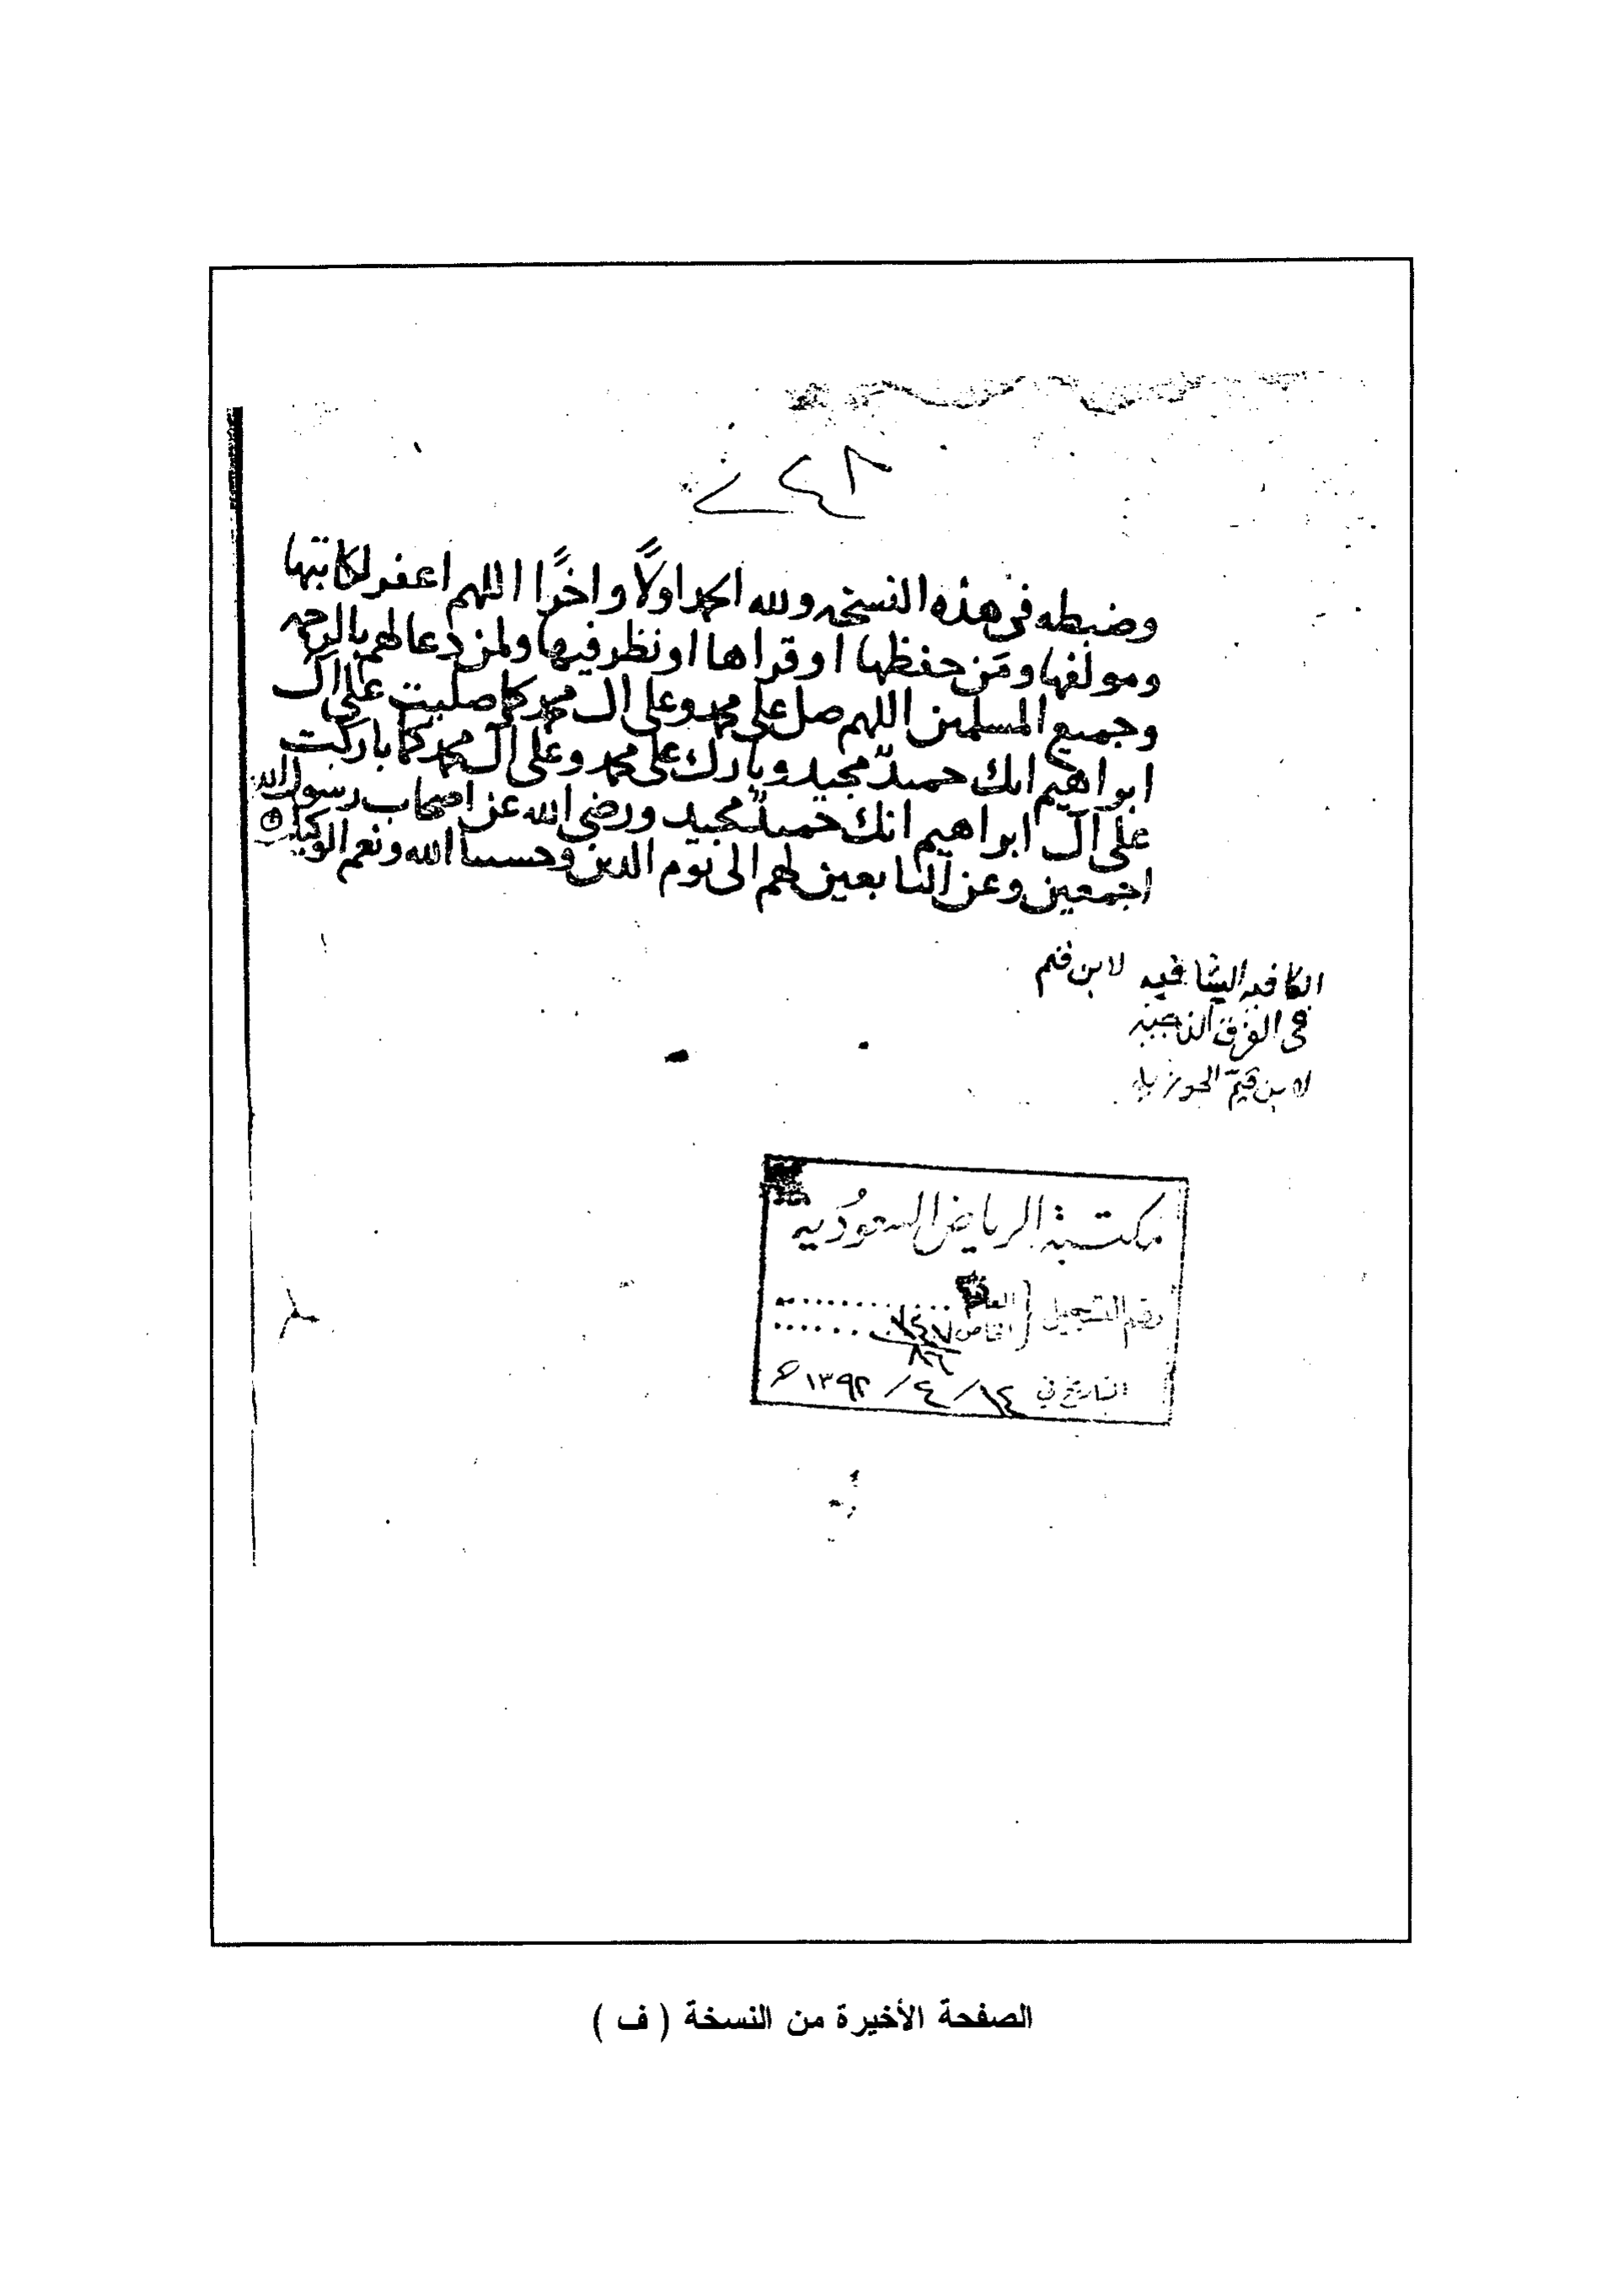 وضبطه في هذه النسخه ولله الحمد اولاً واخرًا اللهم اغفر لكاتبها
ومولفها ومَن حفظها او قراها او نظر فيها ولمن دعا لهم بالرحمه
وجميع المسلمين اللهم صل على محمد وعلى ال محمد كما صليت على ال
ابراهيم انك حميدٌ مجيد وبارك على محمد وعلى آل محمد كما باركت
على آل ابراهيم انك حميدٌ مجيد ورضي الله عن اصحاب رسول الله
اجمعين وعن التابعين لهم الى يوم الدين وحسبنا الله ونعم الوكيل
الكافيه الشافيه لابن قيم
في الفرق الناجيه
لابن قيّم الجوزيه
مكتبة الرياض السعودية
رقم التسجيل العام
الخاص
٨٦
التاريخ في ١٤ / ٤ / ١٣٩٢
الصفحة الأخيرة من النسخة ( ف )